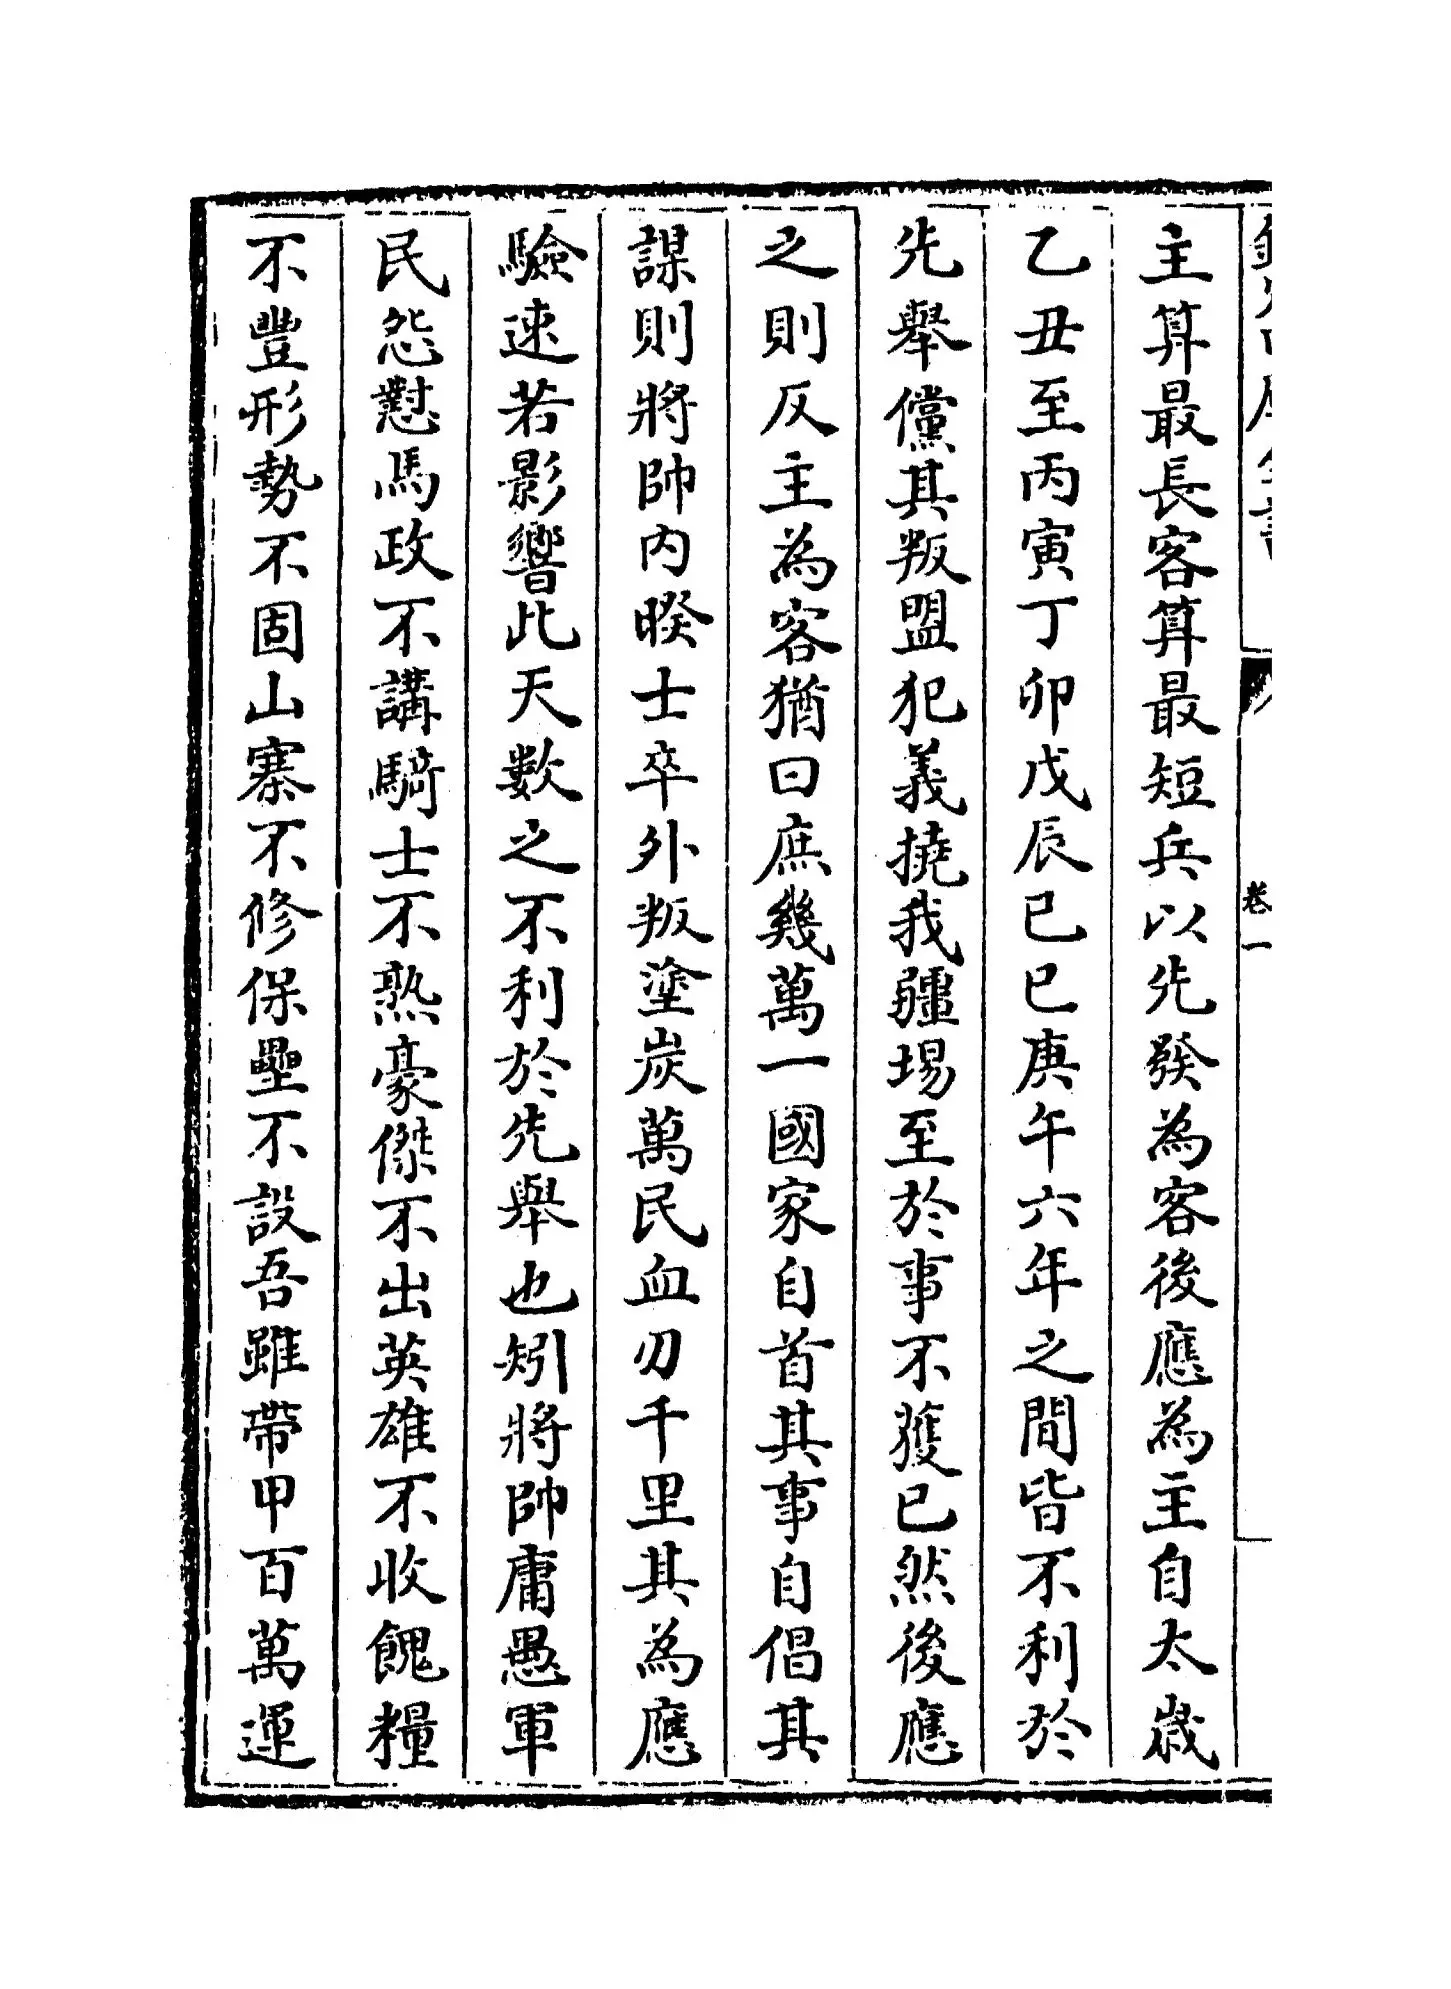 卷一
主算最長客算最短兵以先發為客後應為主自太歲
乙丑至丙寅丁卯戊辰己巳庚午六年之間皆不利於
先舉儻其叛盟犯義撓我疆埸至於事不獲已然後應
之則反主為客猶曰庶幾萬一國家自首其事自倡其
謀則將帥内暌士卒外叛塗炭萬民血刃千里其為應
驗速若影響此天數之不利於先舉也矧將帥庸愚軍
民怨懟馬政不講騎士不熟豪傑不出英雄不收餽糧
不豐形勢不固山寨不修保壘不設吾雖帶甲百萬運